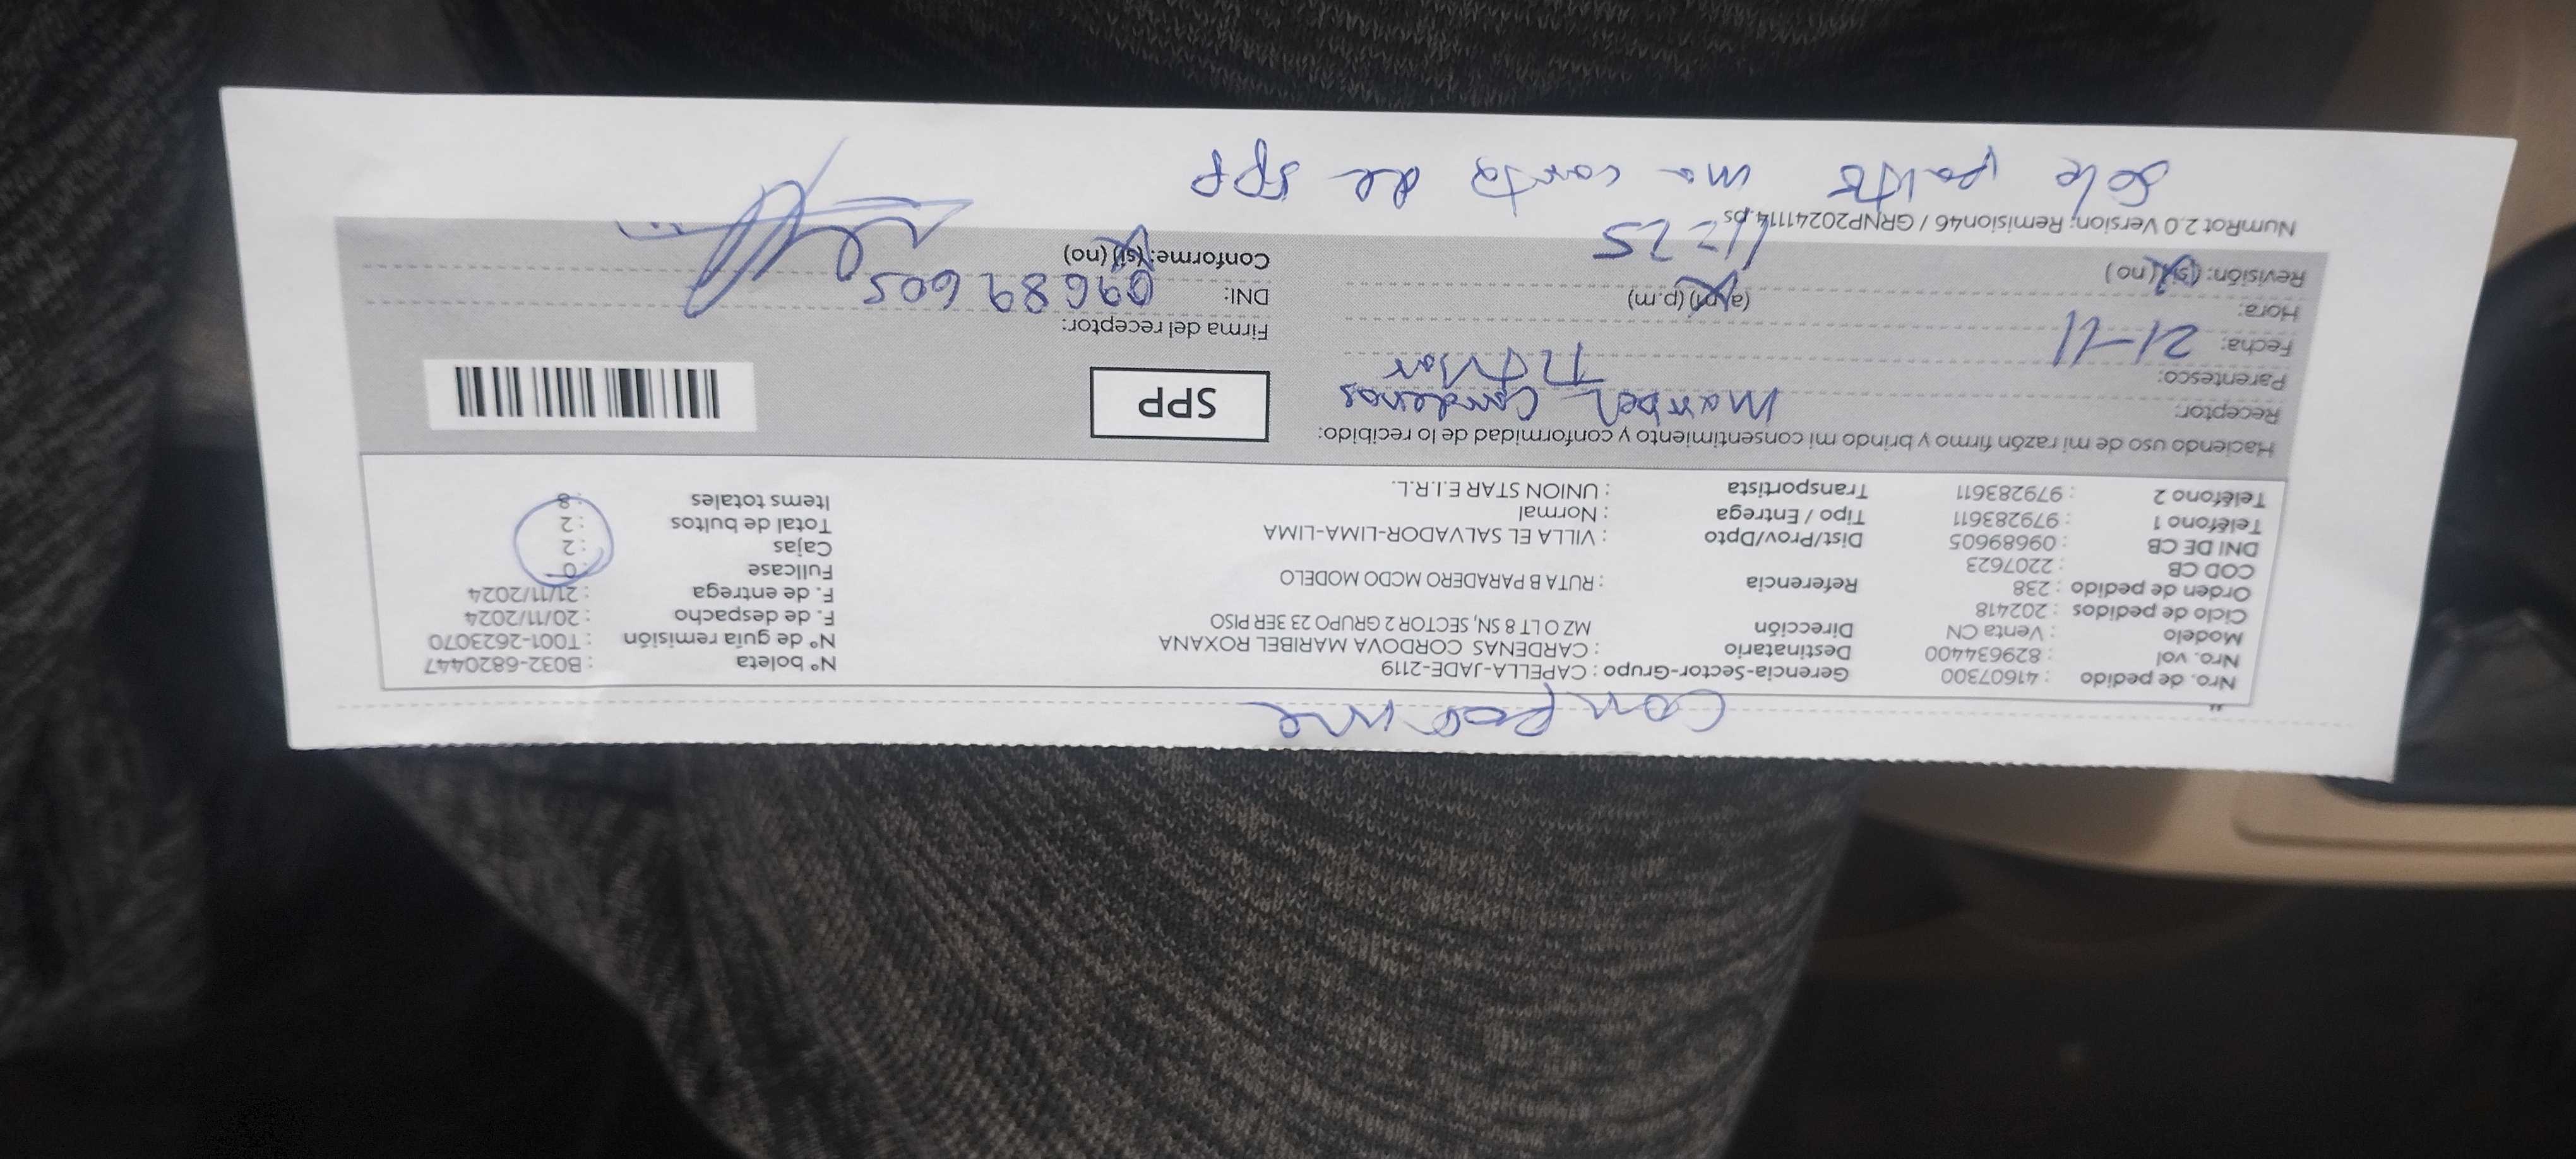 Compro me
Nro. de pedido : 41607300 Gerencia-Sector-Grupo : CAPELLA-JADE-2119 N° boleta : B032-6820447
Nro. vol : 829634400 Destinatario : CARDENAS CORDOVA MARIBEL ROXANA N° de guía remisión : T001-2623070
Modelo : Venta CN Dirección MZ O LT 8 SN, SECTOR 2 GRUPO 23 3ER PISO F. de despacho : 20/11/2024
Ciclo de pedidos : 202418 F. de entrega : 21/11/2024
Orden de pedido : 238 Referencia : RUTA B PARADERO MCDO MODELO Fullcase : 0
COD CB : 2207623 Cajas : 2
DNI DE CB : 09689605 Dist/Prov/Dpto : VILLA EL SALVADOR-LIMA-LIMA Total de bultos : 2
Teléfono 1 : 979283611 Tipo / Entrega : Normal Items totales : 8
Teléfono 2 : 979283611 Transportista : UNION STAR E.I.R.L.
Haciendo uso de mi razón firmo y brindo mi consentimiento y conformidad de lo recibido:
Receptor: Maribel Cardenas SPP
Parentesco: Titular
Fecha: 21-11 Firma del receptor:
Hora: (a.m) (p.m) DNI: 09689605
Revisión: (si) (no) 11:25 Conforme: (si) (no)
NumRot 2.0 Version; Remision46 / GRNP20241114.ps
Solo falto una carta de SPP